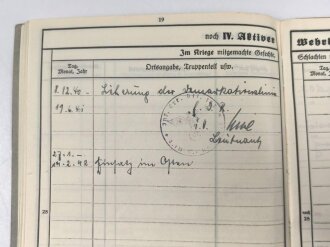 19
noch IV. Aktiver
Wehrd
Im Kriege mitgemachte Gefechte
Schlachten
Tag, Monat, Jahr
Ortsangabe, Truppenteil usw.
8.12.40- Sicherung der Demarkationslinie
19.6.41
Leutnant
27.1.-
42 Einsatz im Osten
28
28